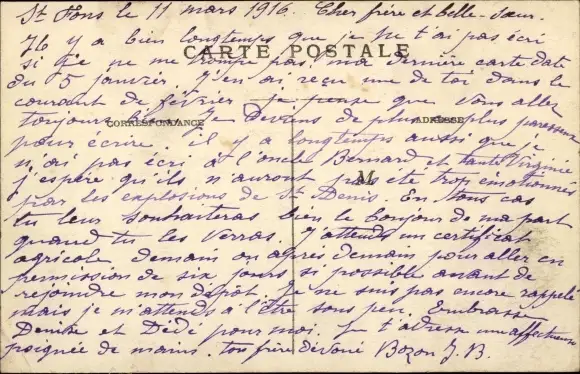 St Fons le 11 mars 1916. Cher frère et belle-sœur.
Il y a bien longtemps que je ne t'ai pas écri
CARTE POSTALE
si je ne me trompe pas, ma dernière carte date
du 5 janvier j'en ai reçu une de toi dans le
courant de février. je pense que vous allez
toujours bien. Je deviens de plus en plus paresseux
CORRESPONDANCE ADRESSE
pour ecrire, il y a longtemps aussi que je
n'ai pas écri à l'oncle Bernard et tante Virginie
M
j'espère qu'ils n'auront pas été trop émotionnés
par les explosions de St Denis. En tous cas
tu leur souhaiteras bien le bonjour de ma part
quand tu les verras. J'attends un certificat
agricole demain ou après demain pour aller en
permission de six jours si possible avant de
rejoindre mon dépôt. Je ne suis pas encore rappelé
mais je m'attends à l'être sous peu. Embrasse
Denise et Dédé pour moi. Je t'adresse une affectueuse
poignée de mains. ton frère dévoué Bozon J. B.